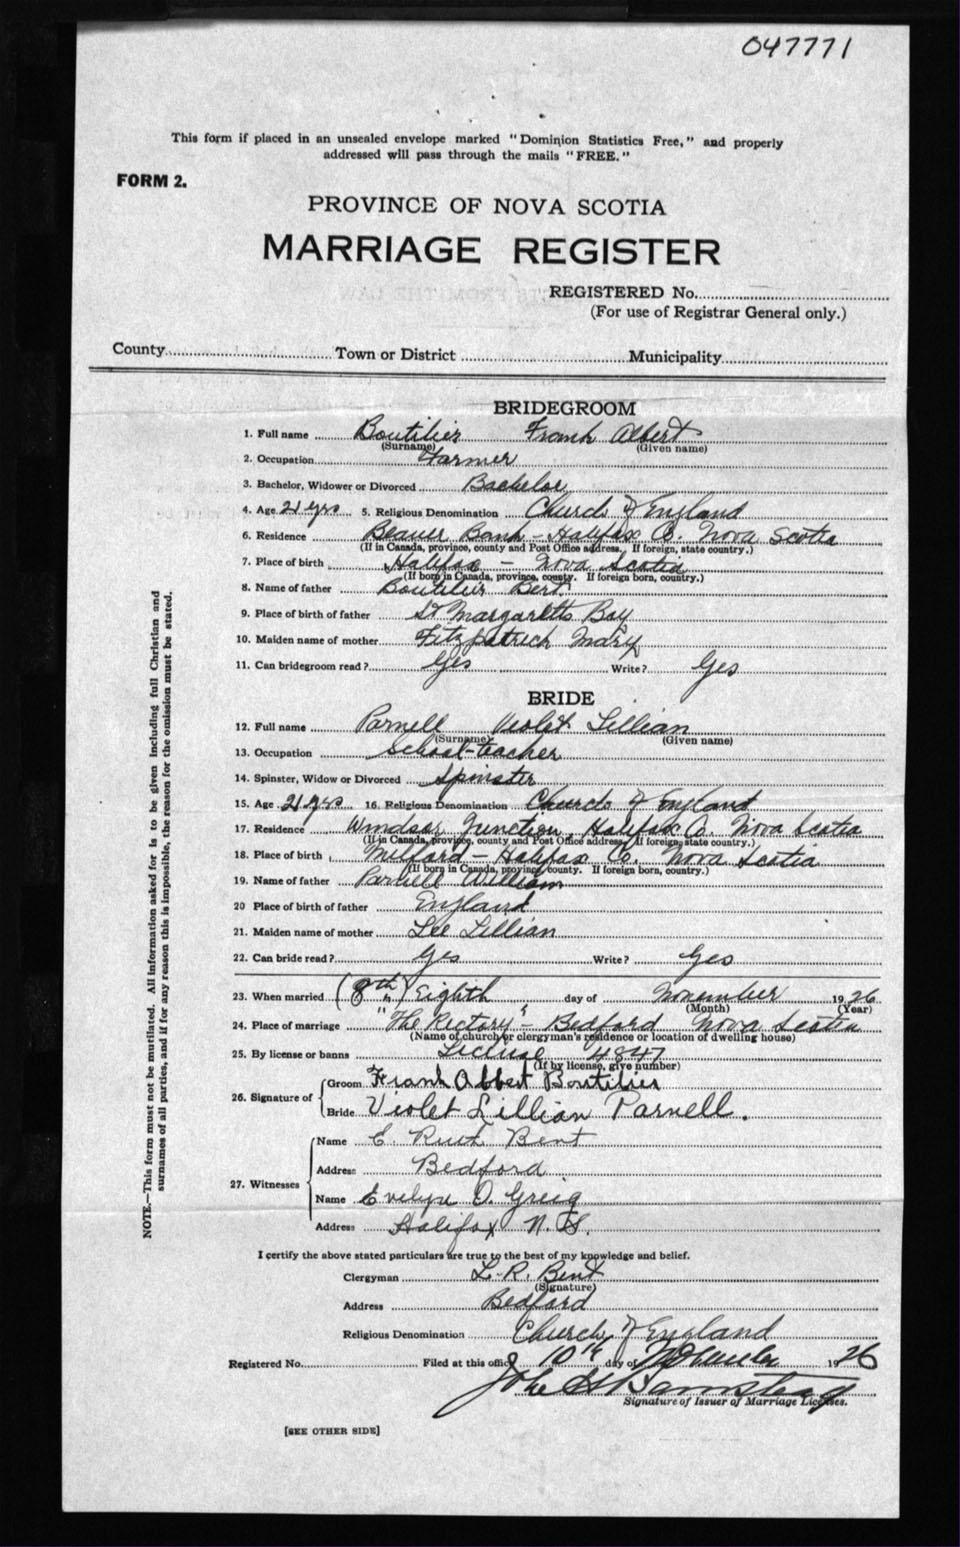 047771
This form if placed in an unsealed envelope marked "Dominion Statistics Free," and properly
addressed will pass through the mails "FREE."
FORM 2.
PROVINCE OF NOVA SCOTIA
MARRIAGE REGISTER
REGISTERED No.
(For use of Registrar General only.)
County Town or District Municipality
BRIDEGROOM
1. Full name Boutilier Frank Albert
(Surname) (Given name)
2. Occupation Farmer
3. Bachelor, Widower or Divorced Bachelor
4. Age 21 yrs 5. Religious Denomination Church of England
6. Residence Beaver Bank - Halifax Co. Nova Scotia
(If in Canada, province, county and Post Office address. If foreign, state country.)
7. Place of birth Halifax - Nova Scotia
(If born in Canada, province, county. If foreign born, country.)
8. Name of father Boutilier Bert.
9. Place of birth of father St. Margaretts Bay
10. Maiden name of mother Fitzpatrick Mary
11. Can bridegroom read? Yes Write? Yes
BRIDE
12. Full name Parnell Violet Lillian
(Surname) (Given name)
13. Occupation School-teacher
14. Spinster, Widow or Divorced Spinster
15. Age 21 yrs 16. Religious Denomination Church of England
17. Residence Windsor Junction, Halifax Co. Nova Scotia
(If in Canada, province, county and Post Office address. If foreign, state country.)
18. Place of birth Milford - Halifax Co. Nova Scotia
(If born in Canada, province, county. If foreign born, country.)
19. Name of father Parnell William
20 Place of birth of father England
21. Maiden name of mother Lee Lillian
22. Can bride read? Yes Write? Yes
23. When married (8th) Eighth day of November 1926
(Month) (Year)
24. Place of marriage "The Rectory" - Bedford Nova Scotia
(Name of church or clergyman's residence or location of dwelling house)
25. By license or banns License 4847
(If by license, give number)
26. Signature of Groom Frank Albert Boutilier
Bride Violet Lillian Parnell.
27. Witnesses Name E. Ruth Bent
Address Bedford
Name Evelyn O. Greig
Address Halifax N. S.
I certify the above stated particulars are true to the best of my knowledge and belief.
Clergyman L. R. Bent
(Signature)
Address Bedford
Religious Denomination Church of England
Registered No. Filed at this office 10th day of November 1926
Signature of Issuer of Marriage Licenses.
[SEE OTHER SIDE]
NOTE.—This form must not be mutilated. All information asked for is to be given including full Christian and
surnames of all parties, and if for any reason this is impossible, the reason for the omission must be stated.